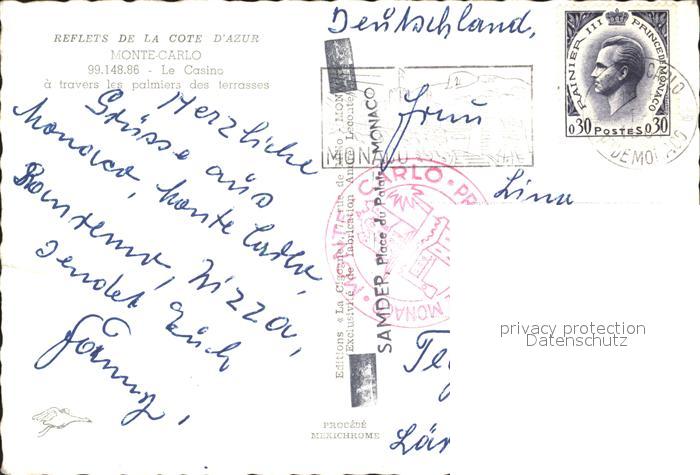 REFLETS DE LA COTE D'AZUR
MONTE-CARLO
99.148.86 - Le Casino
à travers les palmiers des terrasses
Herzliche
Grüsse aus
Monaco, Monte Carlo,
Sanremo, Nizza,
sendet Euch
PROCÉDÉ
MEXICHROME
Editions « La Cigogne »
Exclusivité de fabrication
SAMDEP, Place du Palais, MONACO
Deutschland,
Frau
MONACO
MONTE CARLO
MONACO
RAINIER III PRINCE DE MONACO
0,30 POSTES 0,30
privacy protection
Datenschutz